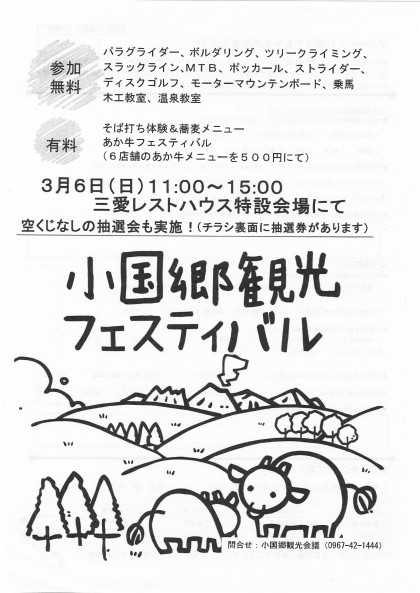 参加
無料
パラグライダー、ボルダリング、ツリークライミング、
スラックライン、MTB、ボッカール、ストライダー、
ディスクゴルフ、モーターマウンテンボード、乗馬
木工教室、温泉教室
有料
そば打ち体験&蕎麦メニュー
あか牛フェスティバル
(6店舗のあか牛メニューを500円にて)
3月6日(日)11:00〜15:00
三愛レストハウス特設会場にて
空くじなしの抽選会も実施!(チラシ裏面に抽選券があります)
小国郷観光
フェスティバル
問合せ:小国郷観光会議 (0967-42-1444)